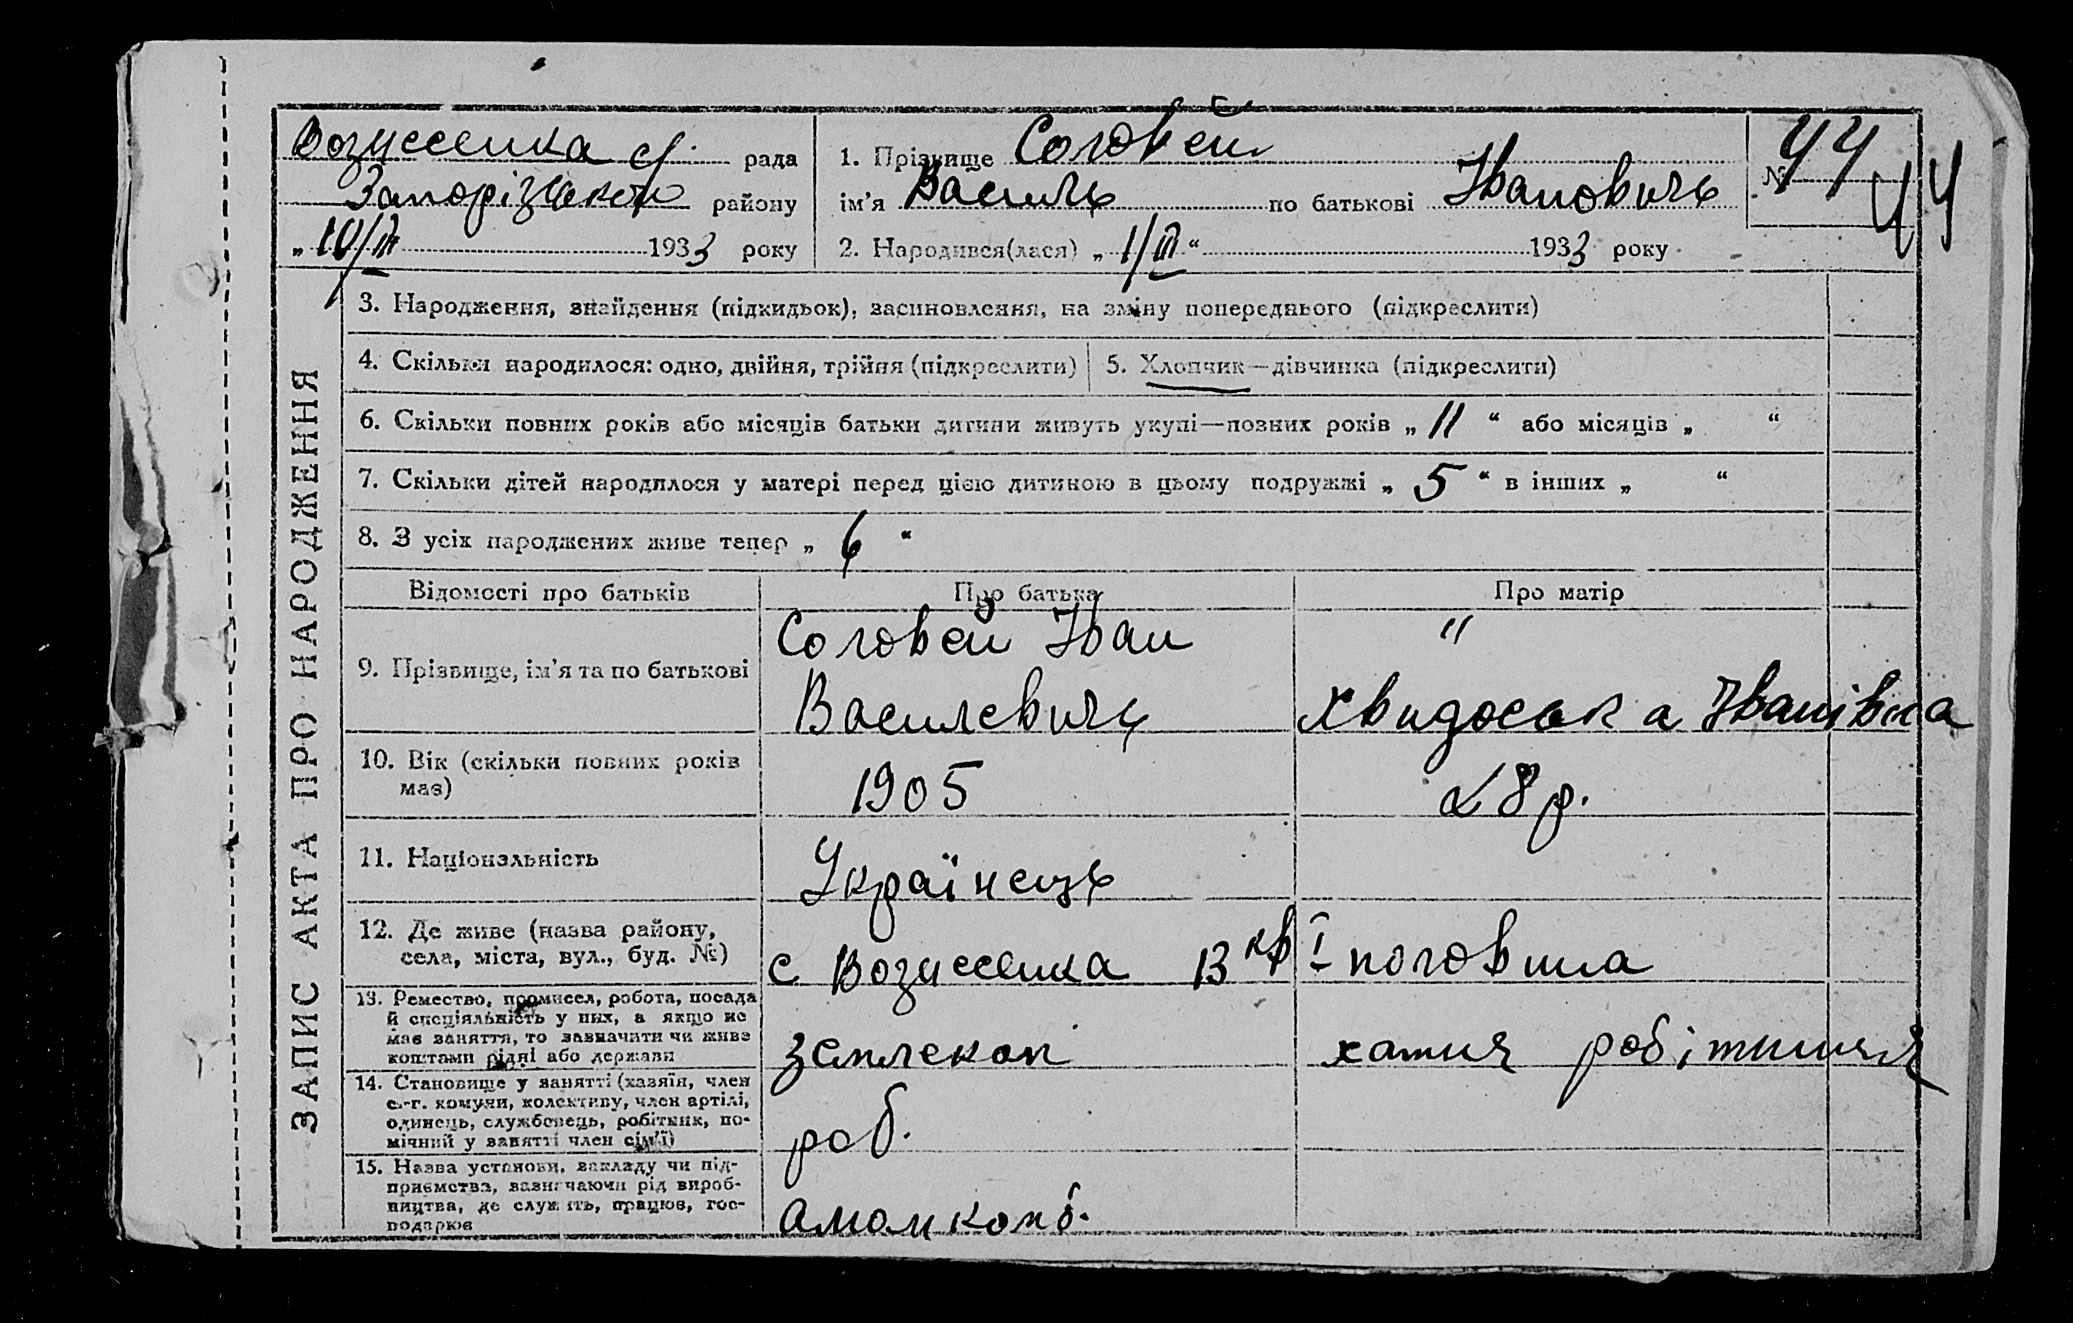 Вознесенка с/. рада
Запорізького району
„ 10/III 1933 року
1. Прізвище Соловей
ім'я Василь по батькові Іванович
2. Народився(лася) „ 1/III “ 1933 року
№ 44
44
ЗАПИС АКТА ПРО НАРОДЖЕННЯ
3. Народження, знайдення (підкидьок), засиновлення, на зміну попереднього (підкреслити)
4. Скільки народилося: одно, двійня, трійня (підкреслити)
5. Хлопчик—дівчинка (підкреслити)
6. Скільки повних років або місяців батьки дитини живуть укупі—повних років „ 11 “ або місяців „ “
7. Скільки дітей народилося у матері перед цією дитиною в цьому подружжі „ 5 “ в інших „ “
8. З усіх народжених живе тепер „ 6 “
Відомості про батьків
Про батька
Про матір
9. Прізвище, ім'я та по батькові
Соловей Іван
Василевичь
"
Хвидоська Іванівна
10. Вік (скільки повних років
має)
1905
28 р.
11. Національність
Українець
12. Де живе (назва району,
села, міста, вул., буд. №)
с Вознесенка 13 кв I половина
13. Ремество, промисел, робота, посада
й спеціяльність у них, а якщо не
має заняття, то зазначити чи живе
коштами рідні або держави
землекоп
хатня робітниця
14. Становище у занятті (хазяїн, член
с.-г. комуни, колективу, член артілі,
одинець, службовець, робітник, по-
мічний у занятті член сім'ї)
роб.
15. Назва установи, закладу чи під-
приємства, зазначаючи рід вироб-
ництва, де служить, працює, гос-
подарює